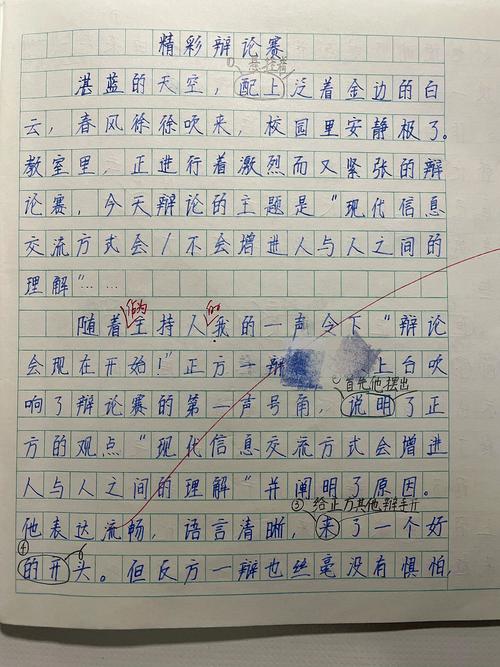 精彩辩论赛
① 悬挂着
湛蓝的天空，配上泛着金边的白
云，春风徐徐吹来，校园里安静极了。
教室里，正进行着激烈而又紧张的辩
论赛，今天辩论的主题是“现代信息
交流方式会/不会增进人与人之间的
理解”……
作为 的
随着主持人我的一声令下“辩论
会现在开始！”正方一辩 上台吹
首先他摆出
响了辩论赛的第一声号角，说明了正
方的观点“现代信息交流方式会增进
人与人之间的理解”并阐明了原因。
③ 给正方其他辩手
他表达流畅，语言清晰，来了一个好
④
的开头。但反方一辩也丝毫没有惧怕，